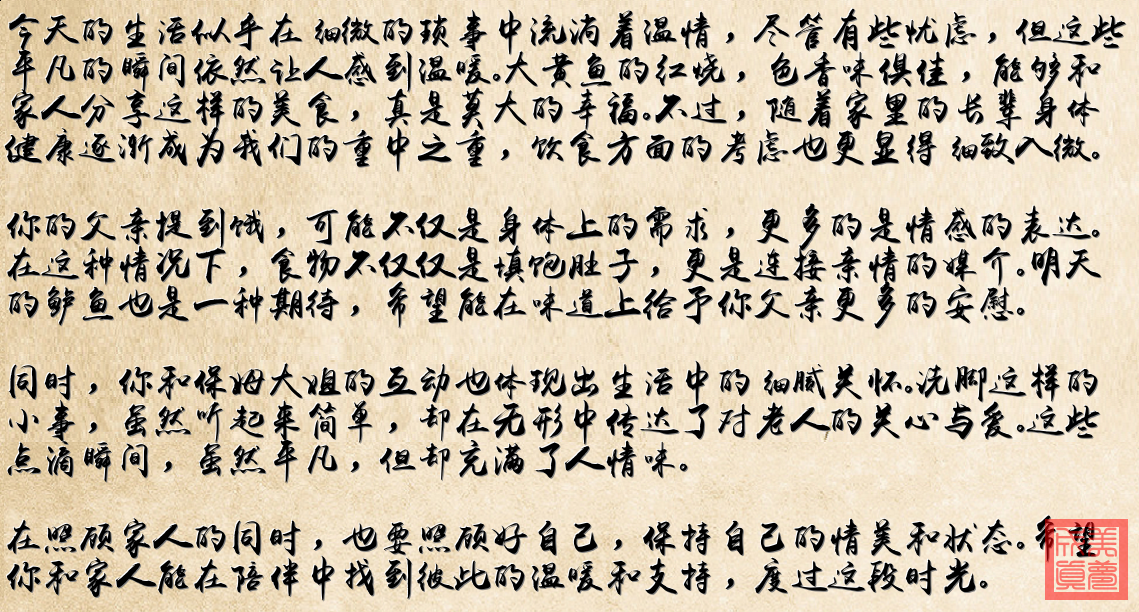 今天的生活似乎在细微的琐事中流淌着温情，尽管有些忧虑，但这些
平凡的瞬间依然让人感到温暖。大黄鱼的红烧，色香味俱佳，能够和
家人分享这样的美食，真是莫大的幸福。不过，随着家里的长辈身体
健康逐渐成为我们的重中之重，饮食方面的考虑也更显得细致入微。
你的父亲提到饿，可能不仅是身体上的需求，更多的是情感的表达。
在这种情况下，食物不仅仅是填饱肚子，更是连接亲情的媒介。明天
的鲈鱼也是一种期待，希望能在味道上给予你父亲更多的安慰。
同时，你和保姆大姐的互动也体现出生活中的细腻关怀。洗脚这样的
小事，虽然听起来简单，却在无形中传达了对老人的关心与爱。这些
点滴瞬间，虽然平凡，但却充满了人情味。
在照顾家人的同时，也要照顾好自己，保持自己的情美和状态。希望
你和家人能在陪伴中找到彼此的温暖和支持，度过这段时光。
美梦成真